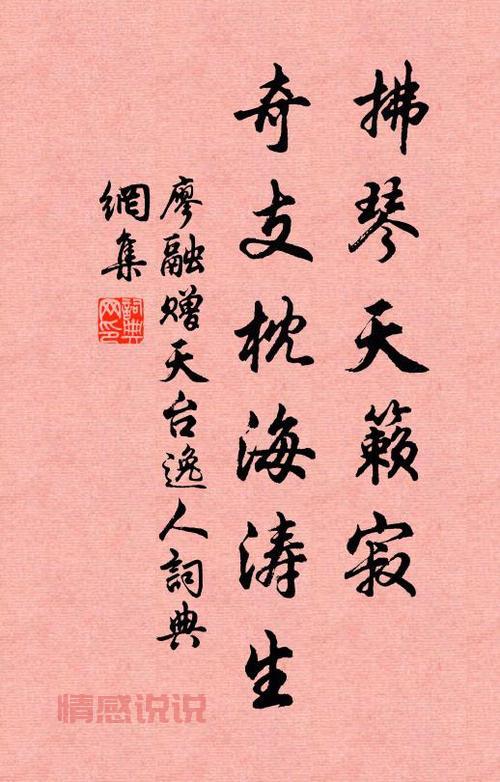 拂琴天籟寂
奇支枕海涛生
廖融赠天台逸人詞典
網集
詞典
网印
情感说说